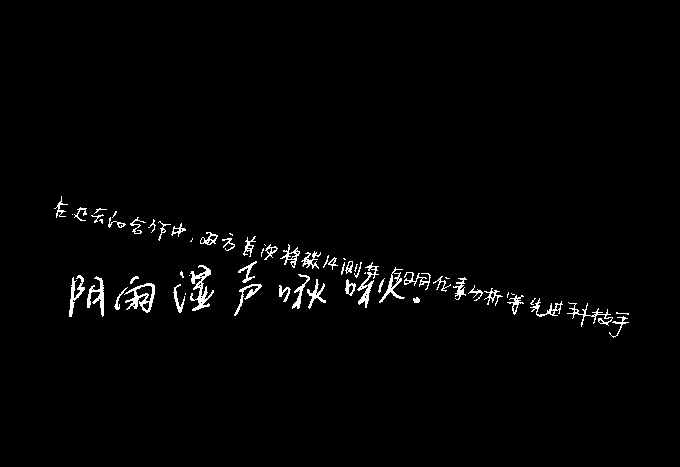 在过去的合作中，双方首次将碳14测年、铅同位素分析等先进科技手
阴雨湿声啾啾.